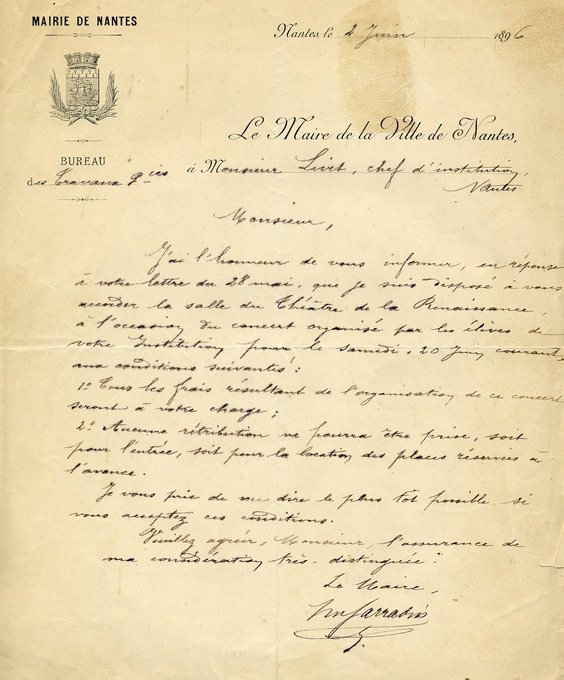 MAIRIE DE NANTES
Nantes, le 2 Juin 1896
Le Maire de la Ville de Nantes,
BUREAU
des Travaux p.ics
à Monsieur Livet, chef d'institution,
Nantes
Monsieur,
J'ai l'honneur de vous informer, en réponse
à votre lettre du 28 mai, que je suis disposé à vous
accorder la salle du Théâtre de la Renaissance,
à l'occasion du concert organisé par les élèves de
votre Institution pour le samedi, 20 Juin courant,
aux conditions suivantes :
1º Tous les frais résultant de l'organisation de ce concert
seront à votre charge ;
2º Aucune rétribution ne pourra être prise, soit
pour l'entrée, soit pour la location des places réservées à
l'avance.
Je vous prie de me dire le plus tôt possible si
vous acceptez ces conditions.
Veuillez agréer, Monsieur, l'assurance de
ma considération très-distinguée.
Le Maire,